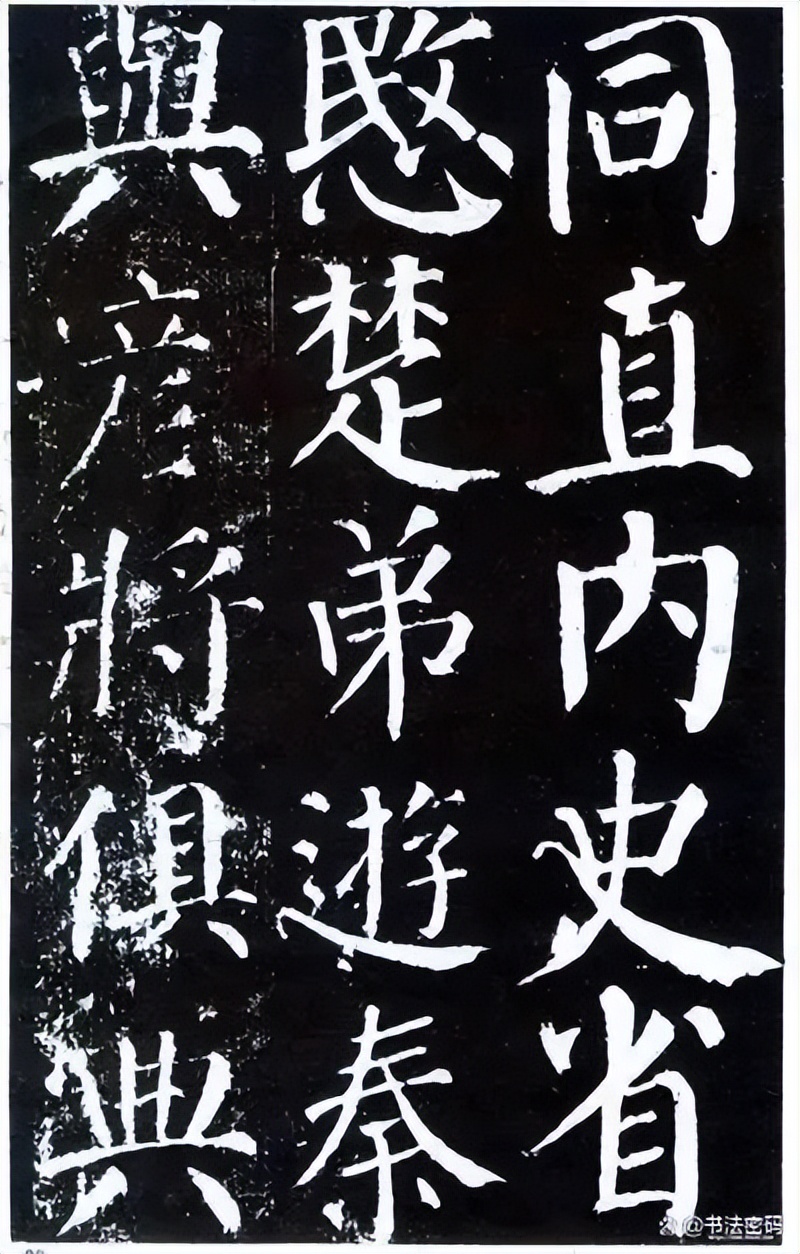 同直内史省
愍楚弟遊秦
與彦將俱典
@书法密码